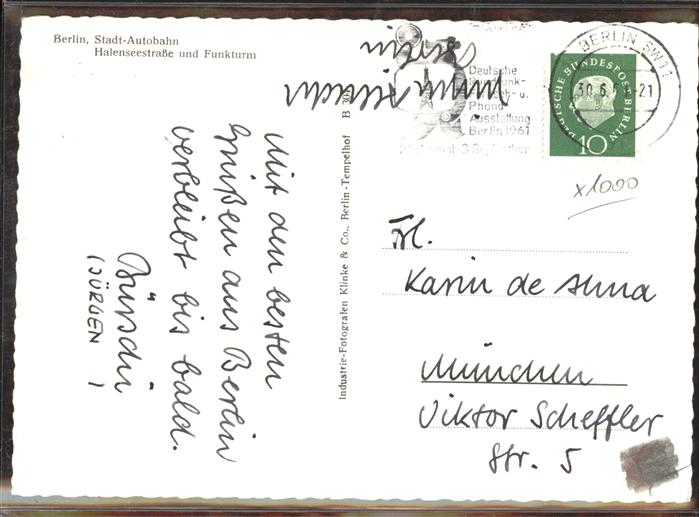 Berlin, Stadt-Autobahn
Halenseestraße und Funkturm
Berlin
Mit den besten
Grüßen aus Berlin
verbleibt bis bald.
(JÜRGEN)
Industrie-Fotografen Klinke & Co., Berlin-Tempelhof
Deutsche
Rundfunk-
u.
Phono
Ausstellung
Berlin 1961
BERLIN SW 11
30.6.
-21
DEUTSCHE BUNDESPOST BERLIN
10
x1000
Frl.
Karin de Ahna
München
Viktor Scheffler
Str. 5